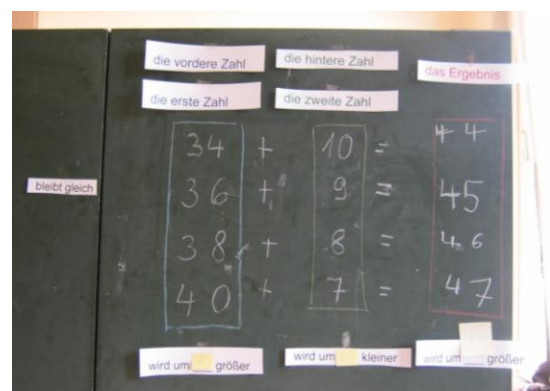 die vordere Zahl die hintere Zahl das Ergebnis
die erste Zahl die zweite Zahl
34 + 10 = 44
bleibt gleich 36 + 9 = 45
38 + 8 = 46
40 + 7 = 47
wird um größer wird um kleiner wird um ___ größer